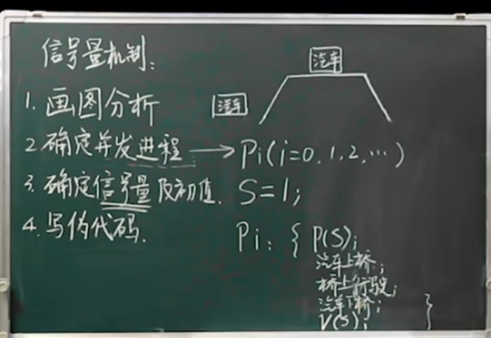 信号量机制:
汽车
汽车
1. 画图分析
2. 确定并发进程 → Pi(i=0,1,2,…)
3. 确定信号量及初值. S=1;
4. 写伪代码.
Pi: { P(S);
汽车上桥;
桥上行驶;
汽车下桥;
V(S); }